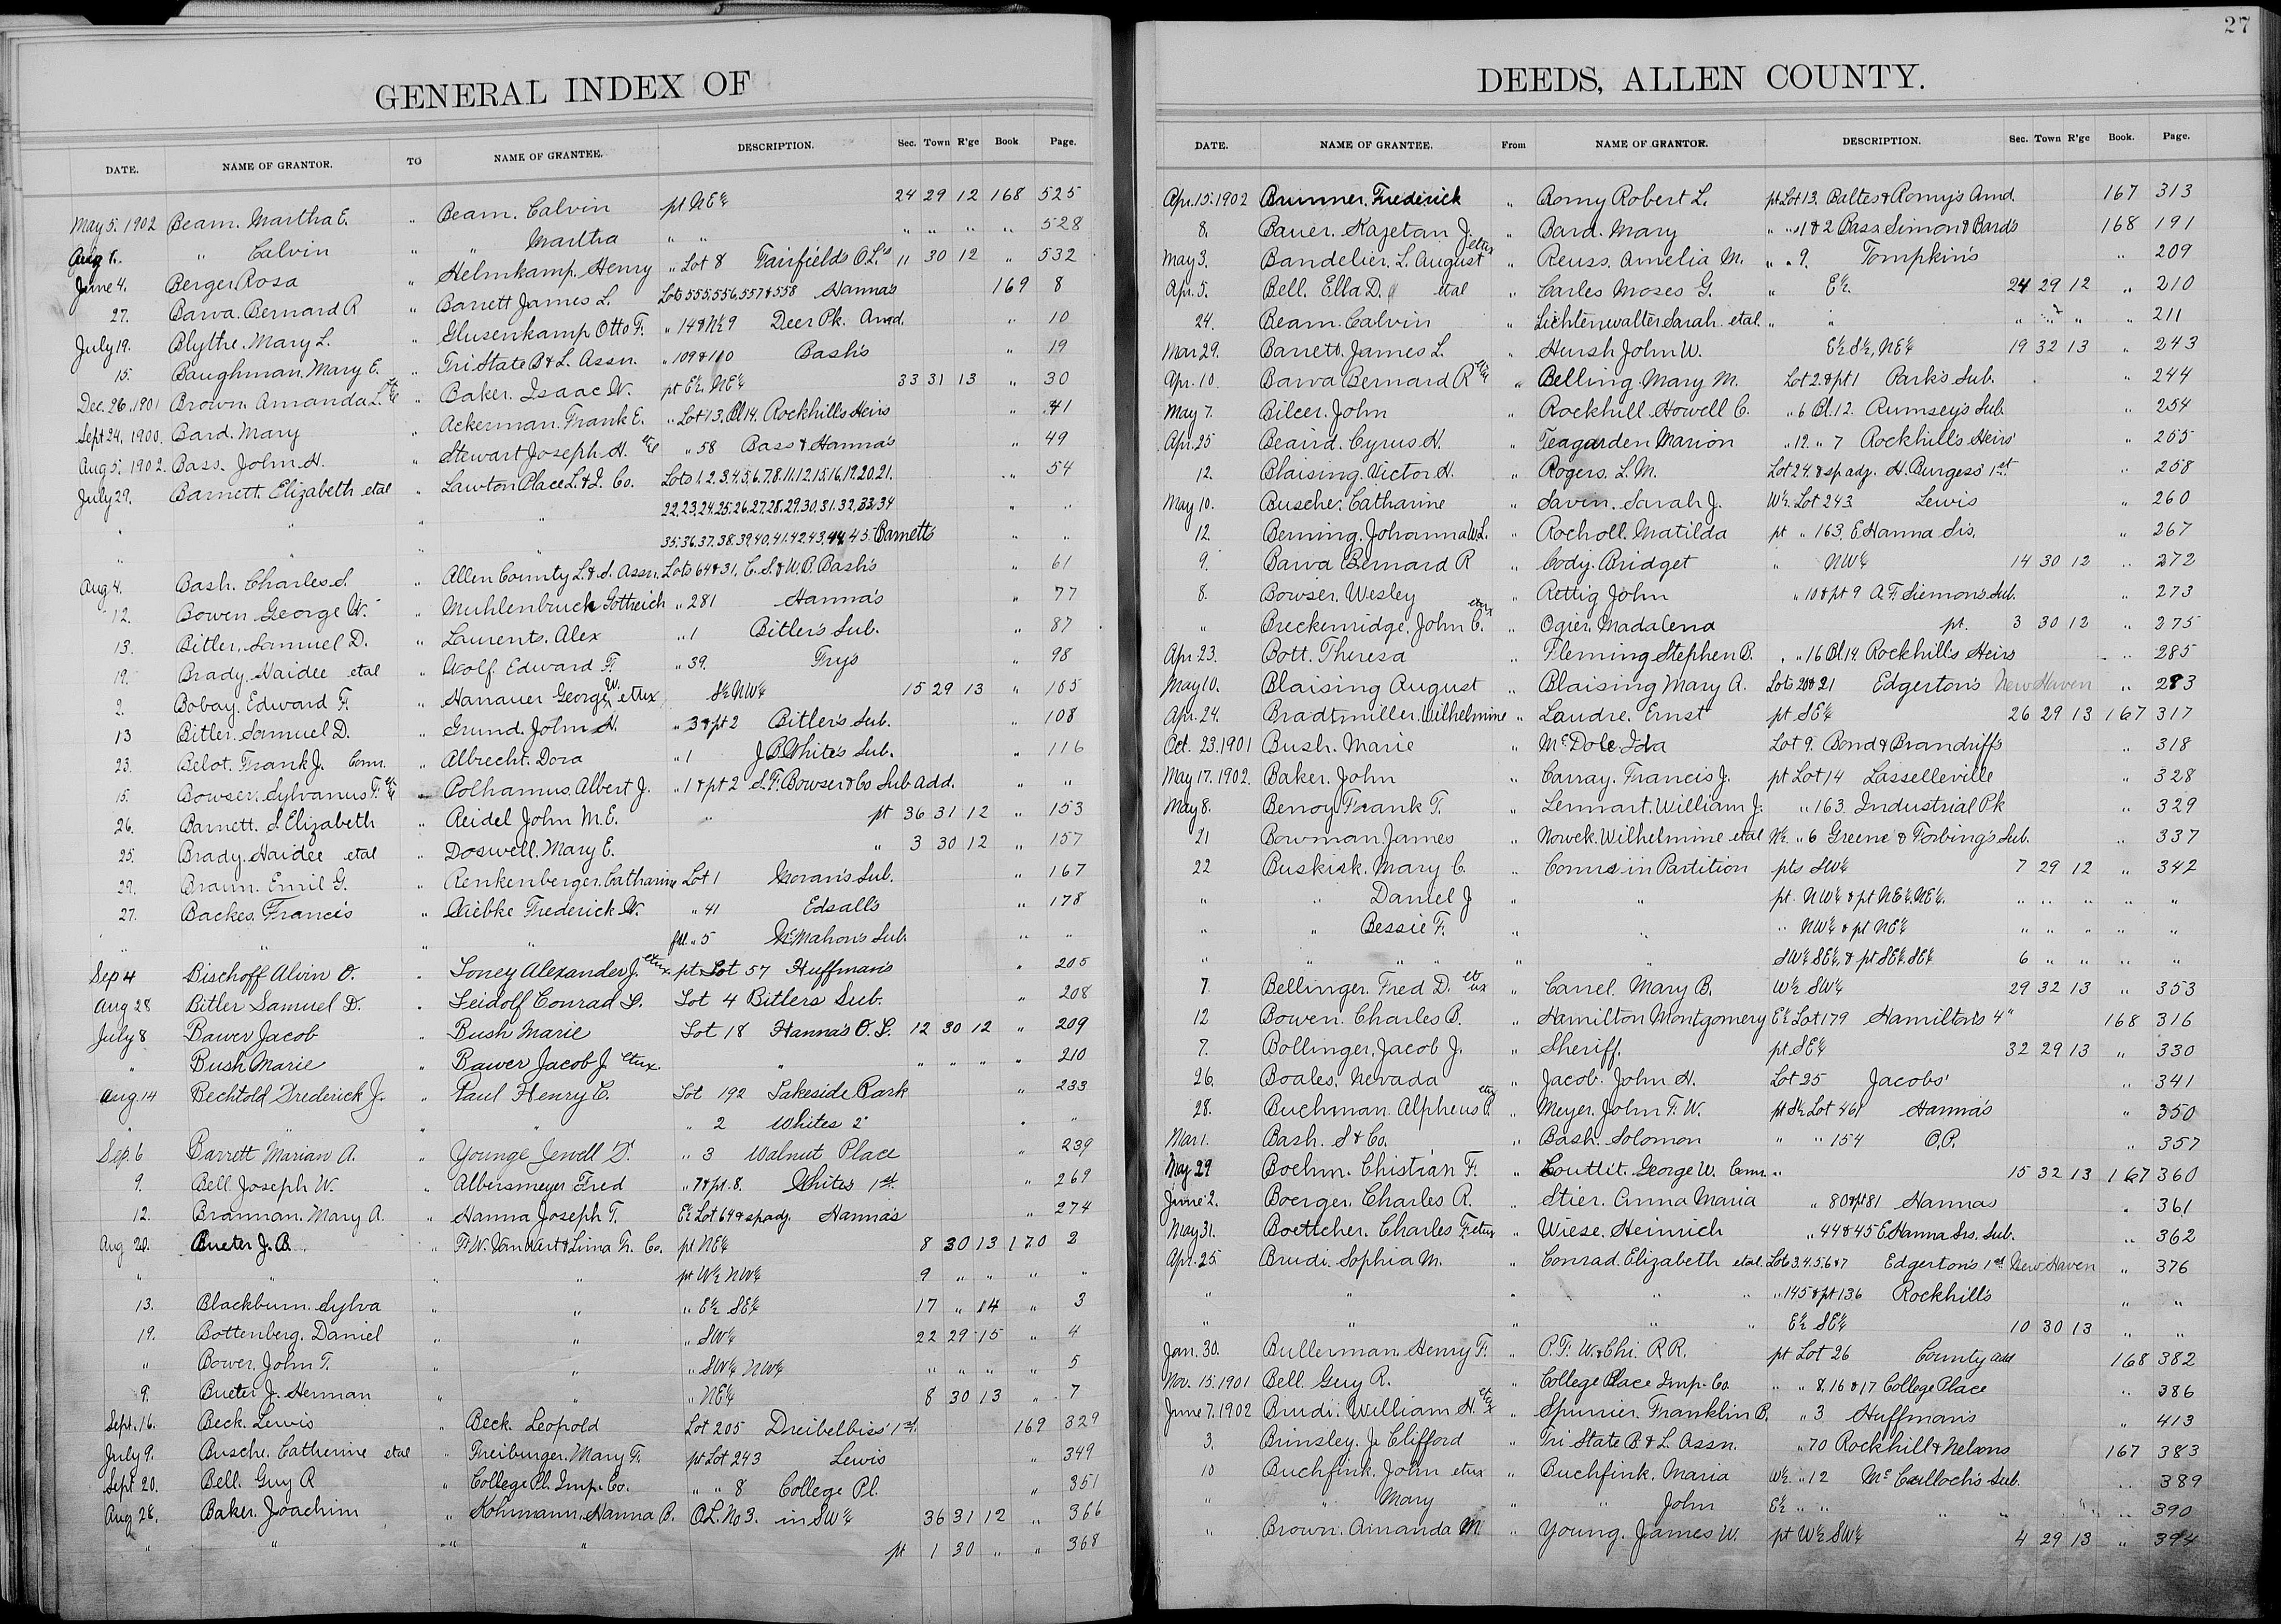 GENERAL INDEX OF
DATE. NAME OF GRANTOR. TO NAME OF GRANTEE. DESCRIPTION. Sec. Town R'ge Book Page.
May 5. 1902 Beam. Martha E. " Beam. Calvin pt NE¼ 24 29 12 168 525
Aug 1. " Calvin " " Martha " " " " " " 528
June 4. Berger Rosa " Helmkamp, Henry " Lot 8 Fairfields O.L's 11 30 12 " 532
27. Barva. Bernard R " Barrett James L. Lots 555,556,557 & 558 Hanna's 169 8
July 19. Blythe. Mary L. " Glusenkamp Otto F. " 14 & N½ 9 Deer Pk. Amd. " 10
15. Baughman. Mary E. " Tri State B & L. Assn. " 109 & 110 Bash's " 19
Dec. 26. 1901 Brown. Amanda L. " Baker. Isaac W. pt E½. NE¼ 33 31 13 " 30
Sept 24. 1900. Bard. Mary " Ackerman. Frank E. " Lot 13. Bl 14. Rockhills Heirs " 41
Aug 5. 1902. Bass. John H. " Stewart Joseph H. " 58 Bass & Hanna's " 49
July 29. Barnett. Elizabeth etal " Lawton Place L. & I. Co. Lots 1. 2. 3. 4. 5. 6. 7. 8. 11. 12. 15. 16. 19. 20. 21. " 54
" " " " 22. 23. 24. 25. 26. 27. 28. 29. 30. 31. 32. 33. 34 " "
" " " " 35. 36. 37. 38. 39. 40. 41. 42. 43. 44. 45. Barnetts " "
Aug 4. Bash. Charles S. " Allen County L. & S. Assn. Lots 64 & 31. C. S. & W. P. Bash's " 61
12. Bowen George W. " Muhlenbruch Gottreich " 281 Hanna's " 77
13. Bitler. Samuel D. " Laurents. Alex " 1 Bitler's Sub. " 87
19. Brady Haidee etal " Wolf. Edward F. " 39. Fry's " 98
2. Bobay. Edward F. " Hanauer George W. etux S½ NW¼ 15 29 13 " 105
13 Bitler. Samuel D. " Grund. John H. " 3 & pt 2 Bitler's Sub. " 108
23. Belot. Frank J. Comr. " Albrecht. Dora " 1 J. B. White's Sub. " 116
15. Bowser. Sylvanus F. " Polhamus. Albert J. " 1 & pt 2 S. F. Bowser & Co Sub. Add. " "
26. Barnett. S Elizabeth " Reidel John M. E. " pt 36 31 12 " 153
25. Brady. Haidee etal " Doswell. Mary E. " 3 30 12 " 157
29. Braun. Emil G. " Renkenberger. Catharine Lot 1 Moran's Sub. " 167
27. Backes. Francis " Wiebke Frederick W. " 41 Edsall's " 178
" " " " " 5 McMahon's Sub. " "
Sep 4 Bischoff Alvin O. " Toney Alexander J. etux pt Lot 57 Huffman's " 205
Aug 28 Bitler Samuel D. " Leidolf Conrad L. Lot 4 Bitlers Sub. " 208
July 8 Bawer Jacob " Bush Marie Lot 18 Hanna's O. L. 12 30 12 " 209
" Bush Marie " Bawer Jacob J. etux. " " " " " 210
Aug 14 Bechtold Frederick J. " Paul Henry C. Lot 192 Lakeside Park " 233
" " " " " 2 Whites 2" " "
Sep. 6 Barrett Marian A. " Younge Jewell D. " 3 Walnut Place " 239
9. Bell Joseph W. " Albersmeyer Fred " 7 & pt. 8. White's 1st. " 269
12. Brannan. Mary A. " Hanna Joseph T. E½ Lot 64 & sp. adj. Hanna's " 274
Aug 20. Bueter J. B. " Ft W. Van Wert & Lima Tr. Co. pt NE¼ 8 30 13 170 2
" " " " pt W½ NW¼ 9 " " " "
13. Blackburn. Sylva " " " E½ SE¼ 17 " 14 " 3
19. Bottenberg. Daniel " " " SW¼ 22 29 15 " 4
" Bower. John T. " " " SW¼ NW¼ " " " " 5
9. Bueter J. Herman " " " NE¼ 8 30 13 " 7
Sept. 16. Beck. Lewis " Beck. Leopold Lot 205 Dreibelbiss' 1st. 169 329
July 9. Busche. Catherine etal " Freiburger. Mary F. pt Lot 243 Lewis " 349
Sept 20. Bell. Guy R " College Pl. Imp. Co. " " 8 College Pl. " 351
Aug 28. Baker. Joachim " Kohrmann. Hanna B. O.L. No 3. in SW¼ 36 31 12 " 366
" " " " pt 1 30 " " 368
27
DEEDS, ALLEN COUNTY.
DATE. NAME OF GRANTEE. From NAME OF GRANTOR. DESCRIPTION. Sec. Town R'ge Book. Page.
Apr. 15. 1902 Brunner. Frederick " Romy Robert L. pt Lot 13. Baltes & Romy's Amd. 167 313
8. Bauer. Kazetan J. " Bard. Mary " " 1 & 2 Bass. Simon & Bard's 168 191
May 3. Bandelier. L. August etux " Reuss. Amelia M. " " 9. Tompkin's " 209
Apr. 5. Bell. Ella D. etal " Carles Moses G. " E½. 24 29 12 " 210
24. Beam. Calvin " Lichtenwalter Sarah etal. " " " " " " 211
Mar 29. Barrett. James L. " Hursh John W. E½ S½, NE¼ 19 32 13 " 243
Apr. 10 Barva Bernard R " Belling. Mary M. Lot 2. & pt 1 Park's Sub. " 244
May 7. Bilcer. John " Rockhill. Howell C. " 6 Bl. 12. Rumsey's Sub. " 254
Apr. 25 Beaird. Cyrus H. " Teagarden Marion " 12 " 7 Rockhill's Heirs' " 255
12. Blaising. Victor H. " Rogers. L. M. Lot 24 & sp. adj. H. Burgess' 1st " 258
May 10. Busche. Catharine " Savin. Sarah J. W½ Lot 243 Lewis " 260
12. Berning. Johanna W. L. " Rocholl. Matilda pt " 163. E Hanna Srs. " 267
9. Barva Bernard R " Cody. Bridget " NW¼ 14 30 12 " 272
8. Bowser. Wesley " Rettig John " 10 & pt 9 A. F. Siemon's Sub. " 273
" Breckenridge. John C. etux " Ogier. Madalena pt. 3 30 12 " 275
Apr 23. Bott. Theresa " Fleming Stephen B. " " 16 Bl 14. Rockhill's Heirs " 285
May 10. Blaising August " Blaising Mary A. Lots 20 & 21 Edgerton's New Haven " 283
Apr. 24. Bradtmiller. Wilhelmine " Laudre. Ernst pt SE¼ 26 29 13 167 317
Oct. 23. 1901 Bush. Marie " McDole Ida Lot 9. Bond & Brandriff's " 318
May 17. 1902. Baker. John " Carray. Francis J. pt Lot 14 Lasselleville " 328
May 8. Benoy Frank T. " Lennart. William J. " 163. Industrial Pk " 329
21 Bowman. James " Nowek. Wilhelmine etal N½ " 6 Greene & Forbing's Sub. " 337
22 Buskirk. Mary C. " Comrs in Partition pts SW¼ 7 29 12 " 342
" " Daniel J " " pt. NW¼ & pt NE¼. NE¼. " " " " "
" " Bessie F. " " " NW¼ & pt NE¼ " " " " "
" " " " " SW¼ SE¼, & pt SE¼. SE¼ 6 " " " "
7 Bellinger. Fred D. et ux " Carrel. Mary B. W½ SW¼ 29 32 13 " 353
12 Bowen. Charles B. " Hamilton Montgomery E½ Lot 179 Hamilton's 4" 168 316
7. Bollinger, Jacob J. " Sheriff. pt. SE¼ 32 29 13 " 330
26. Boales. Nevada " Jacob. John H. Lot 25 Jacobs' " 341
28. Buchman. Alpheus P. " Meyer. John F. W. pt S½ Lot 461 Hanna's " 350
Mar 1. Bash. S & Co. " Bash. Solomon " " 154 O.P. " 357
May 29 Boehm. Christian F. " Louttit. George W. Comr. " 15 32 13 167 360
June 2. Boerger. Charles R. " Stier. Anna Maria " 80 & pt 81 Hannas " 361
May 31. Boettcher. Charles F. etux " Wiese. Heinrich " 44 & 45 E. Hanna Srs. Sub. " 362
Apr. 25. Brudi. Sophia M. " Conrad. Elizabeth etal. Lots 3. 4. 5. 6 & 7 Edgerton's 1st New Haven " 376
" " " " " " 145 & pt 136 Rockhill's " "
" " " " " E½ SE¼ 10 30 13 " "
Jan. 30. Bullerman. Henry F. " P. Ft. W. & Chi. R R. pt Lot 26 County Add 168 382
Nov. 15. 1901 Bell. Guy R. " College Place Imp. Co. " " 8, 16 & 17 College Place " 386
June 7. 1902 Brudi. William H. " Spurrier. Franklin B. " 3 Huffman's " 413
3. Brinsley. J. Clifford " Tri State B. & L. Assn. " 70 Rockhill & Nelsons 167 383
10 Buchfink. John etux " Buchfink. Maria W½ " 12 McCulloch's Sub. " 389
" " Mary " " John E½ " " " " " 390
" Brown. Amanda M " Young. James W. pt W½ SW¼ 4 29 13 " 394